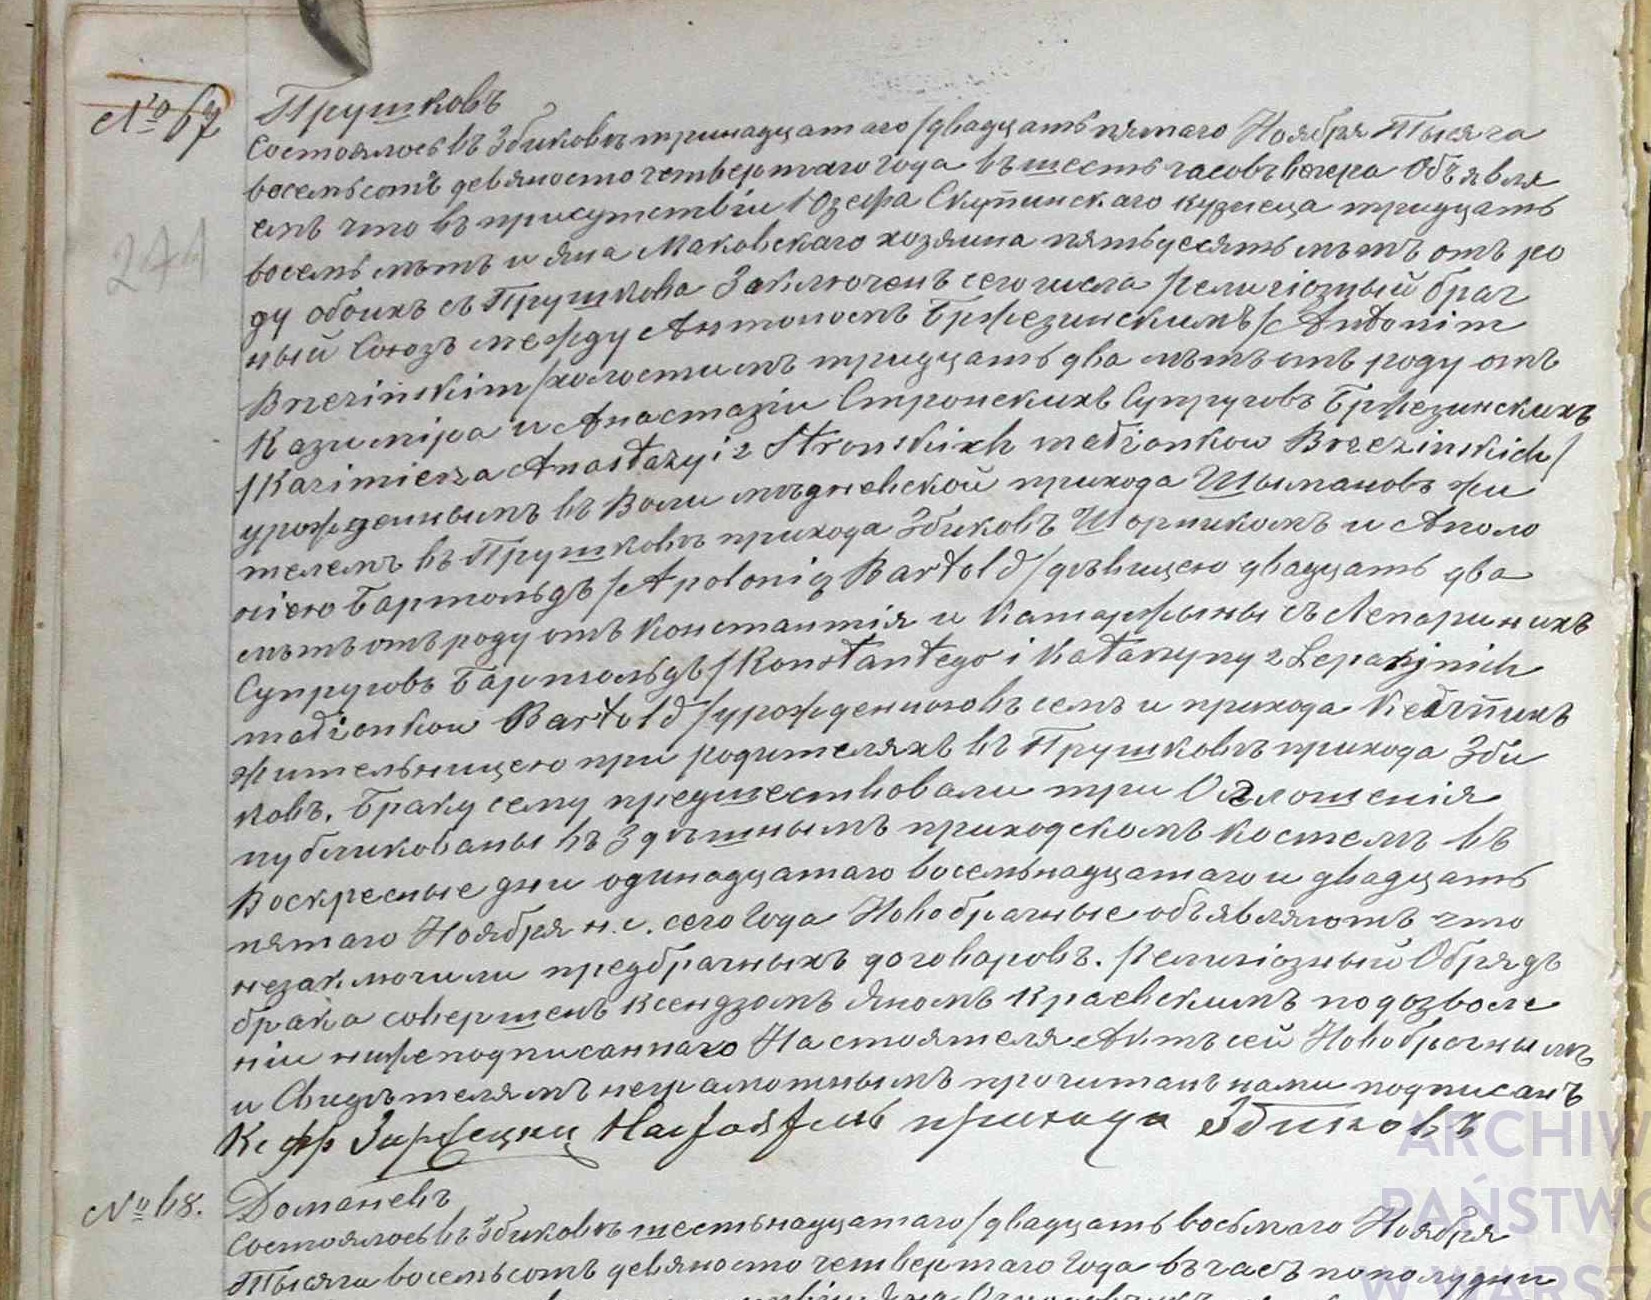 № 67
Прушковъ
Состоялось въ Збиковѣ тринадцатаго /двадцать пятаго Ноября Тысяча
восемьсотъ девяносто четвертаго года въ шесть часовъ вечера Объявля
емъ что въ присутствіи Юзефа Скупинскаго кузнеца тридцать
восемь лѣтъ и Яна Маковскаго хозяина пятьдесять лѣтъ отъ ро
ду обоихъ съ Прушкова Заключенъ сего числа религіозный брач
ный Союзъ между Антономъ Бржезинскимъ /Antonim
Brzezinskim/ холостымъ тридцать два лѣтъ отъ роду отъ
Казиміра и Анастазіи Стронскихъ Супруговъ Бржезинскихъ
/Kazimierza Anastazyi z Stronskich małżonkow Brzezinskich/
урожденнымъ въ Воли прихода Шымановъ жи
телемъ въ Прушковѣ прихода Збиковъ Шорникомъ и Аполо
ніею Бартольдъ /Apolonią Bartold/ дѣвицею двадцать два
лѣтъ отъ роду отъ Константія и Катаржыны съ Лепариныхъ
Супруговъ Бартольдъ /Konstantego i Katarzyny z Leparynich
małżonkow Bartold/ урожденною въ селѣ и прихода
жительницею при родителяхъ въ Прушковѣ прихода Зби
ковъ. Браку сему предшествовали три Оглошенія
публикованы въ Здѣшнымъ приходскомъ костелѣ въ
Воскресные дни одинадцатаго восемьнадцатаго и двадцать
пятаго Ноября н.с. сего года Новобрачные объявляютъ что
незаключили предбрачныхъ договоровъ. Религіозный Обрядъ
брака совершенъ Ксендзомъ Яномъ Краевскимъ по дозволе
ніи нижеподписаннаго Настоятеля Актъ сей Новобрачнымъ
и Свидѣтелямъ неграмотнымъ прочитанъ нами подписанъ
Кс Фр Заржецки Настоятель прихода Збиковъ
№ 68.
Доманевъ
Состоялось въ Збиковѣ шестьнадцатаго /двадцать восьмаго Ноября
Тысяча восемьсотъ девяносто четвертаго года въ часъ пополудни
244
ARCHIW
PAŃSTWO
W WARSZ